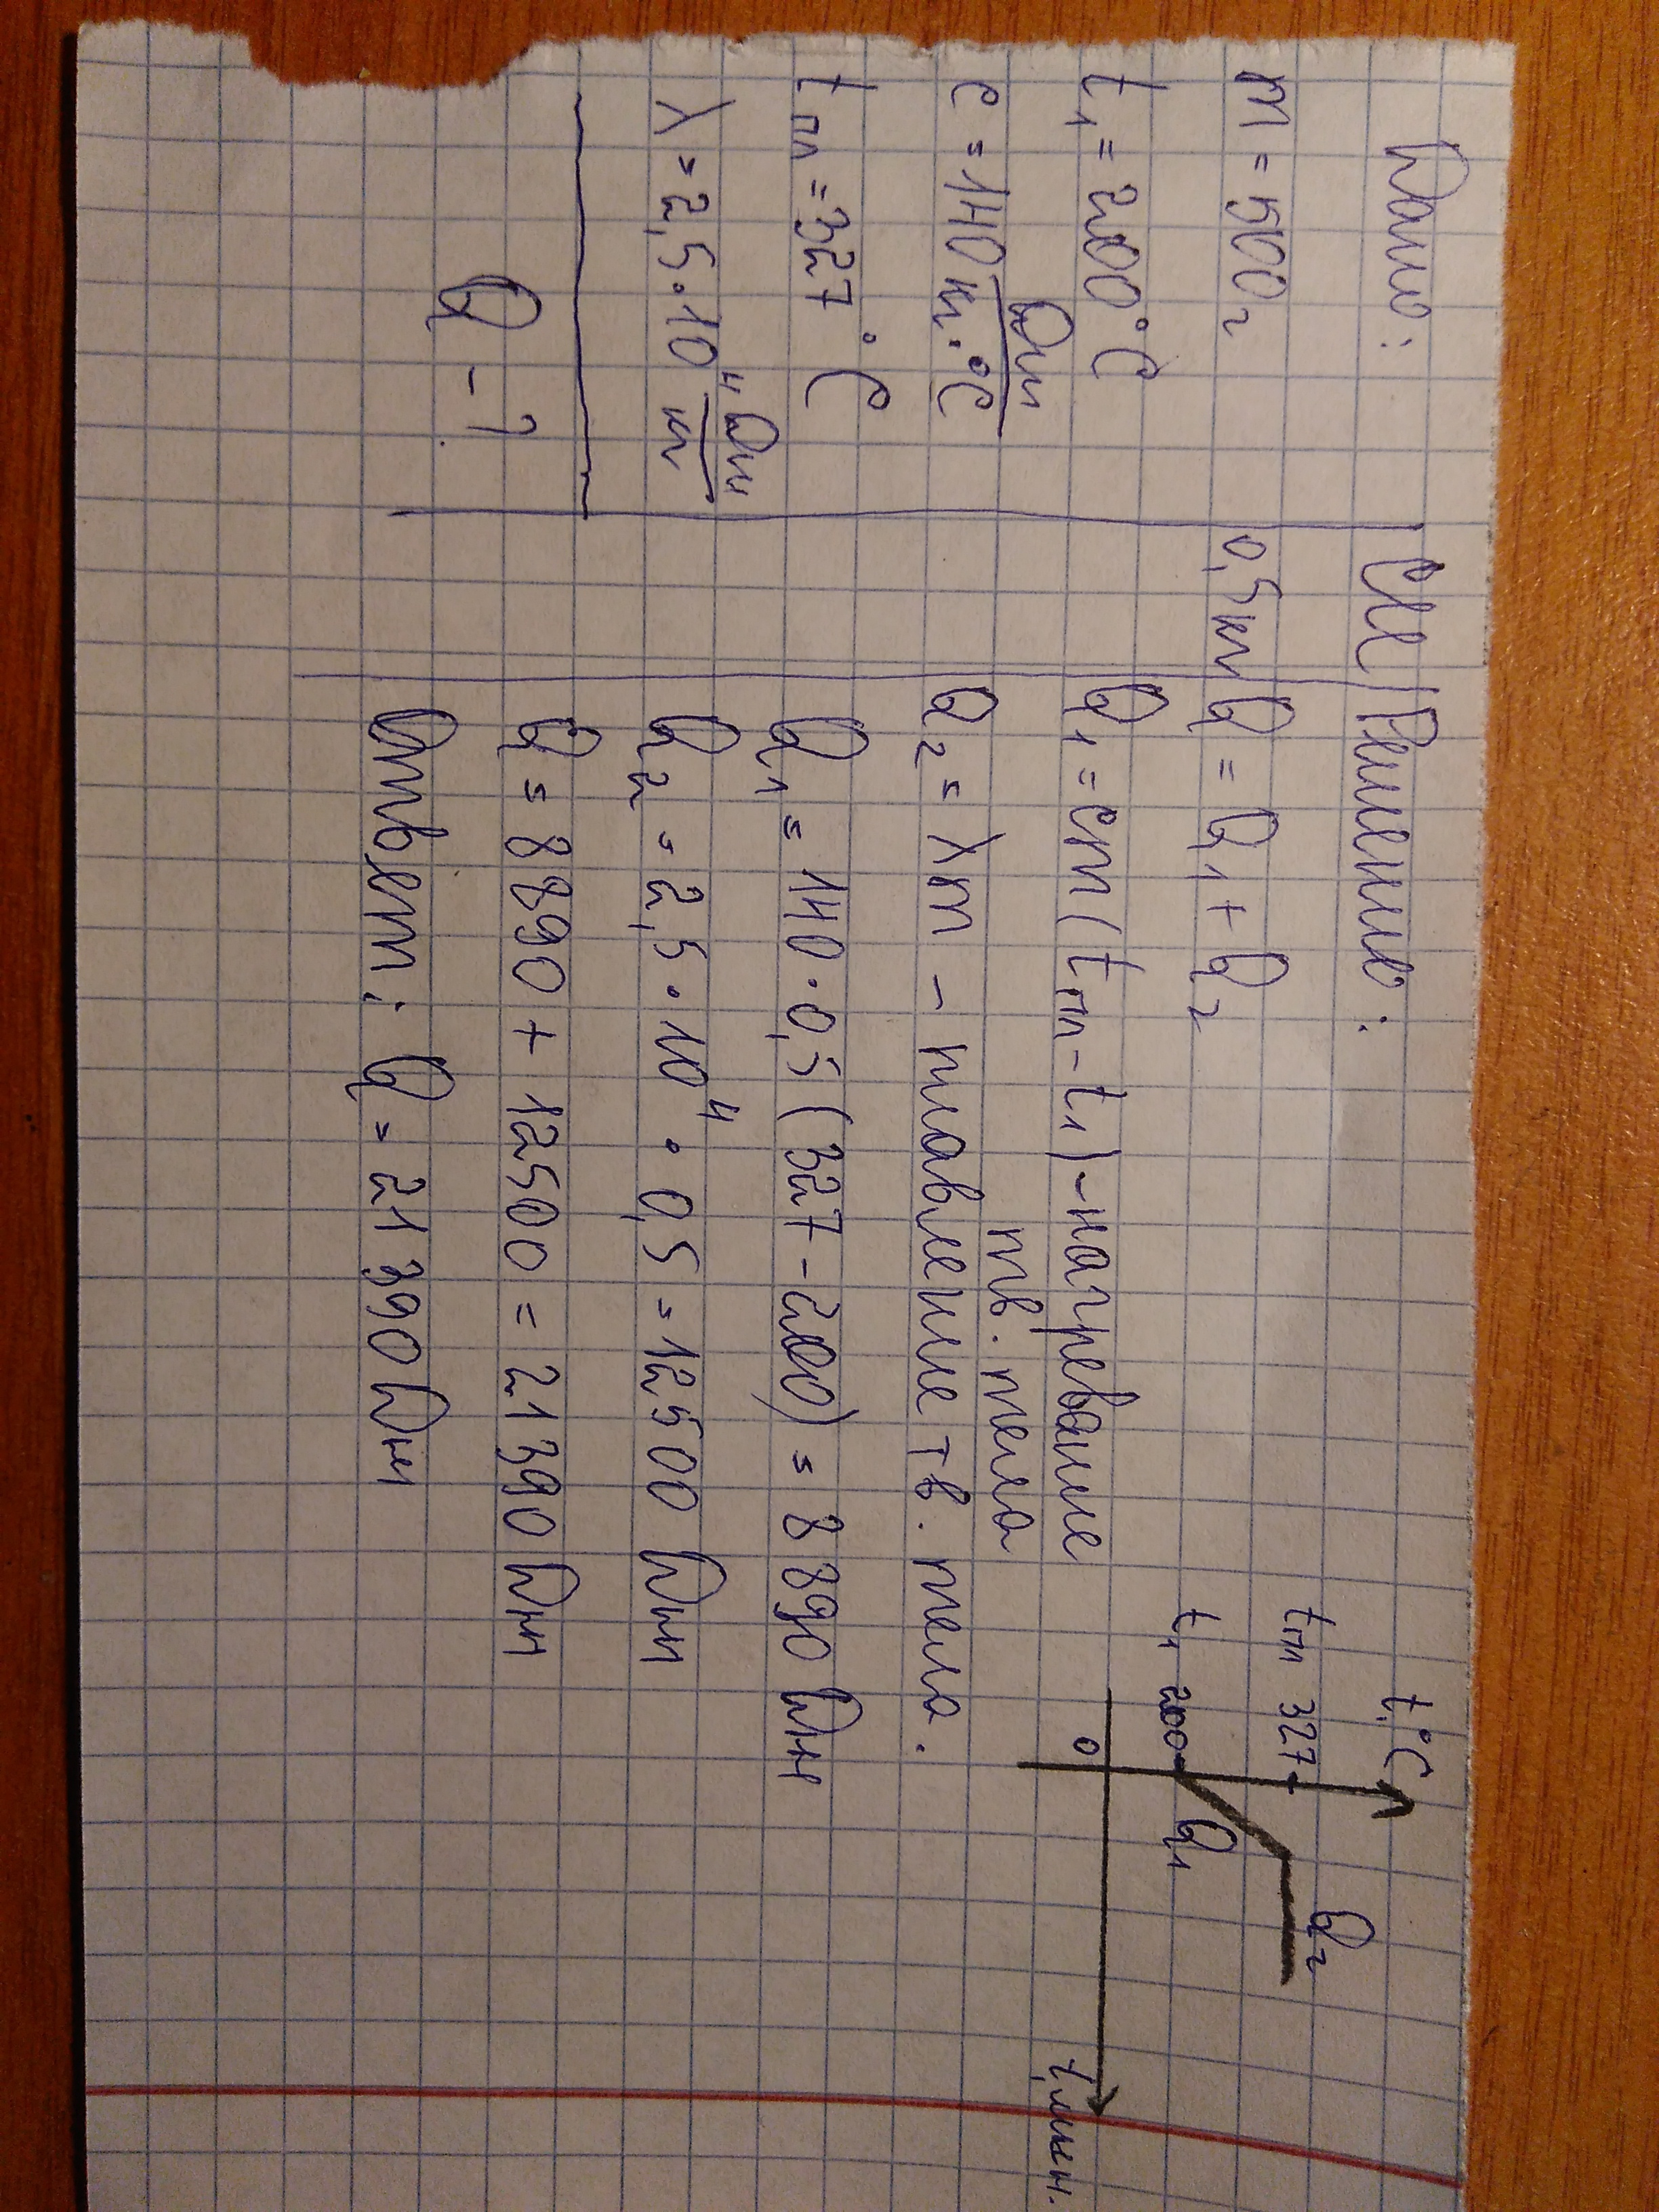 Дано:
m = 500г
t₁ = 200°C
c = 140 Дж/кг·°C
tпл = 327°C
λ = 2,5·10⁴ Дж/кг
Q - ?
СИ
0,5кг
Решение:
Q = Q₁ + Q₂
Q₁ = cm(tпл - t₁) - нагревание
тв. тела
Q₂ = λm - плавление тв. тела.
Q₁ = 140·0,5(327-200) = 8890 Дж
Q₂ = 2,5·10⁴·0,5 = 12500 Дж
Q = 8890 + 12500 = 21390 Дж
Ответ: Q = 21390 Дж
t,°C
tпл 327
t₁ 200
0
Q₁
Q₂
t,мин.